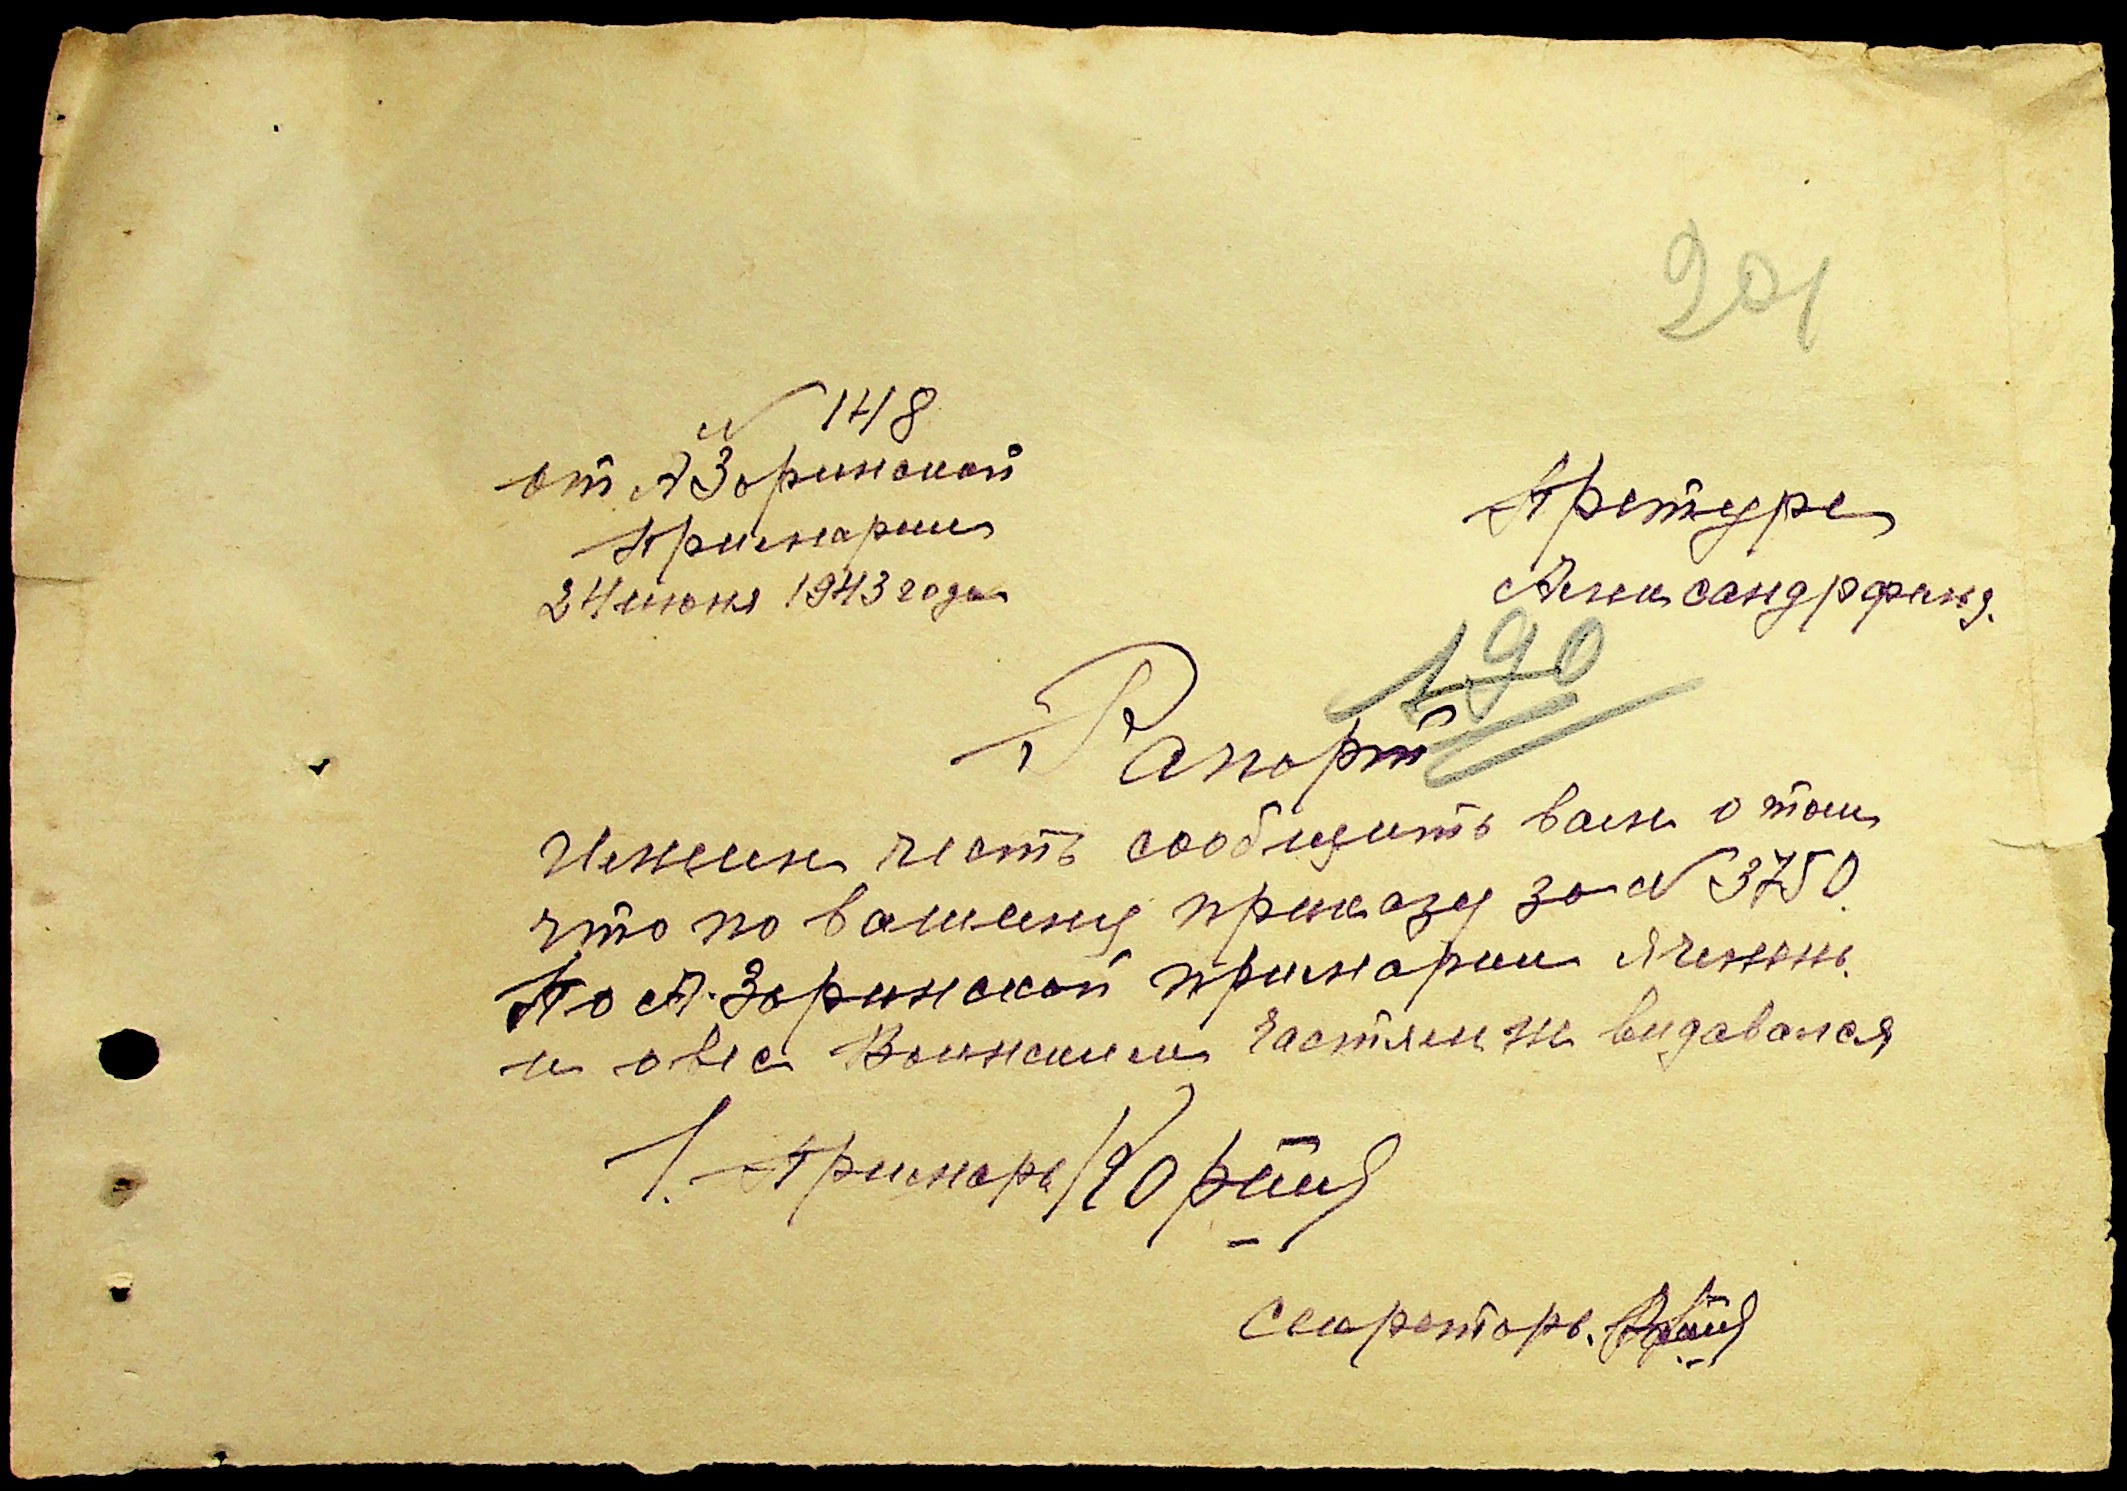 201
№ 148
от А Зоринской
Примарии
24 июня 1943 года
Претуре
Александрфельд.
190
Рапорт
Имеем честь сообщить вам о том
что по вашему приказу за № 3750.
По А. Зоринской примарии ячмень
и овес Воинским частям не видавался
1. Примарь
Секретарь.